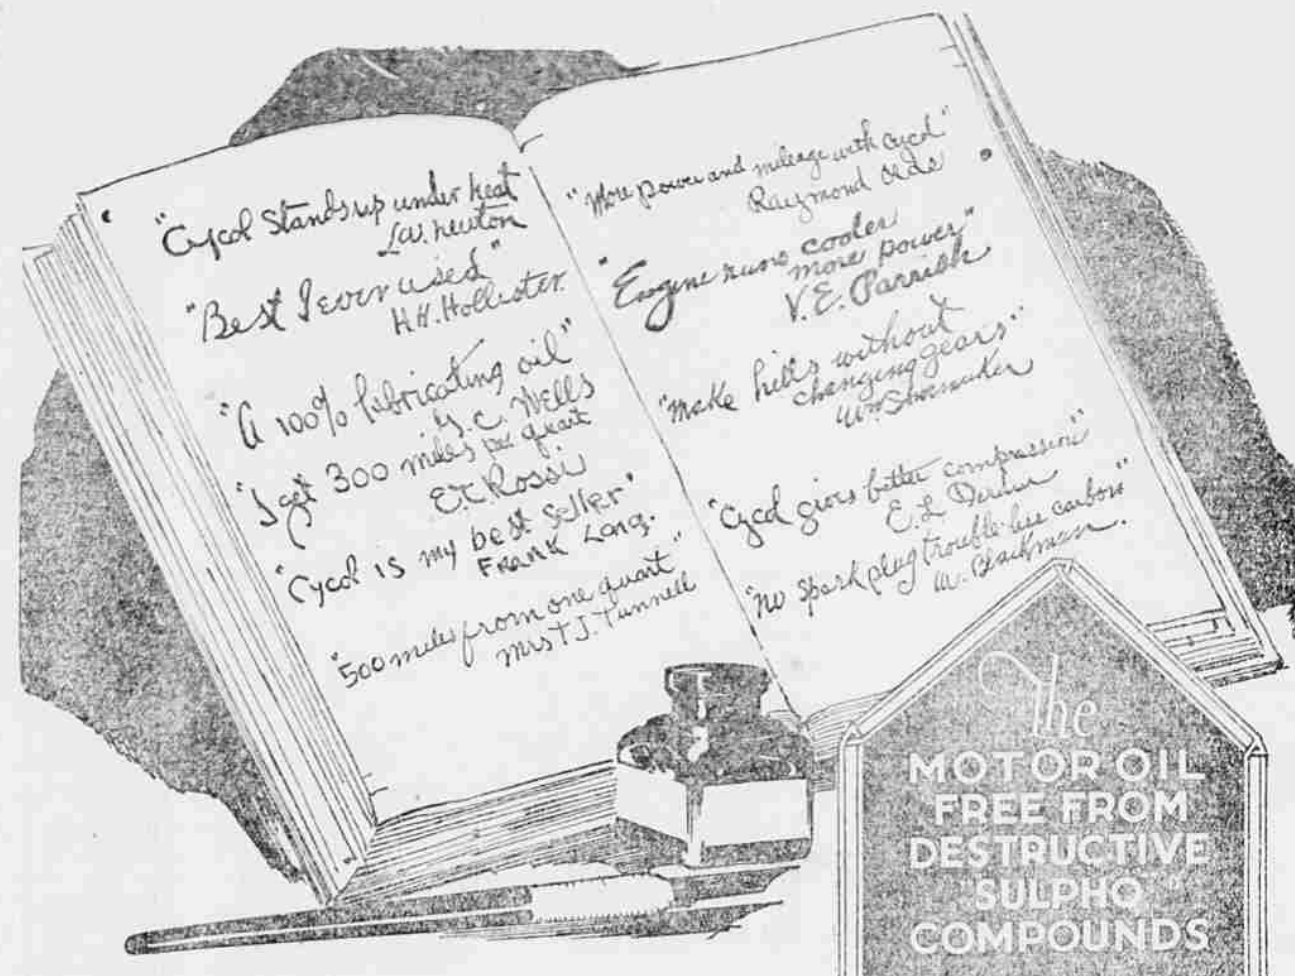 "Cycol Stands up under heat
L.W. Newton
"Best I ever used"
H.H. Hollister.
"A 100% lubricating oil"
G.C. Wells
"I get 300 miles per quart
E.T. Rossi
"Cycol is my best seller"
FRANK Lang.
"500 miles from one quart"
Mrs T J. Tunnell
"More power and mileage with Cycol"
Raymond Olds
"Engine runs cooler
more power"
V.E. Parrish
"Make hills without
changing gears"
Wm Shoemaker
"Cycol gives better compression"
E.L.
"No spark plug trouble-less carbon"
W. Blackman.
The
MOTOR OIL
FREE FROM
DESTRUCTIVE
"SULPHO"
COMPOUNDS